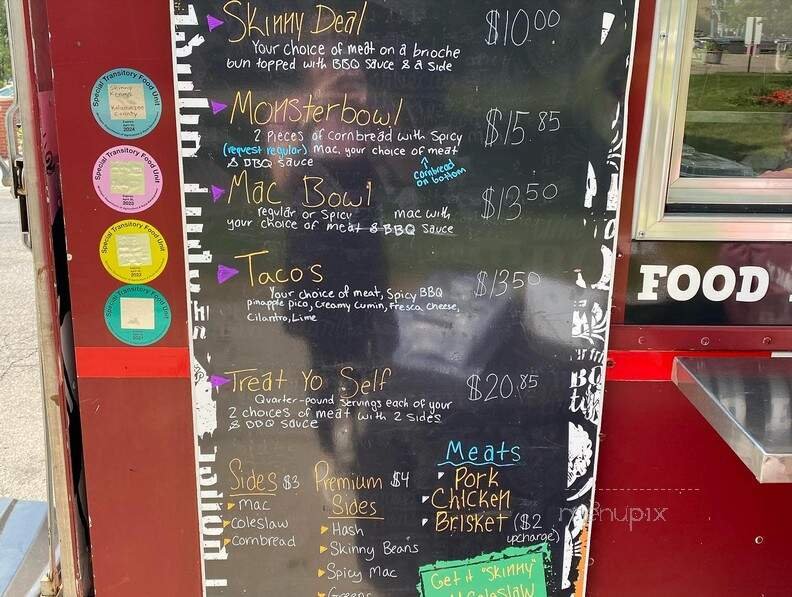 Skinny Deal $10.00
Your choice of meat on a brioche
bun topped with BBQ sauce & a side
Monsterbowl $15.85
2 pieces of cornbread with spicy
(request regular) mac, your choice of meat
& BBQ sauce
cornbread
on bottom
Mac Bowl $13.50
regular or spicy mac with
your choice of meat & BBQ sauce
Tacos $13.50
Your choice of meat, Spicy BBQ
pineapple pico, Creamy cumin, Fresca cheese,
Cilantro, Lime
Treat Yo Self $20.85
Quarter-pound servings each of your
2 choices of meat with 2 sides
& BBQ sauce
Sides $3
Mac
Coleslaw
Cornbread
Premium $4
Sides
Hash
Skinny Beans
Spicy Mac
Greens
Meats
Pork
Chicken
Brisket ($2
upcharge)
Get it "Skinny"
Coleslaw
Special Transitory Food Unit
Skinny
Kenny's
Kalamazoo
County
2024
Special Transitory Food Unit
2023
Special Transitory Food Unit
2022
Special Transitory Food Unit
2021
FOOD
menupix